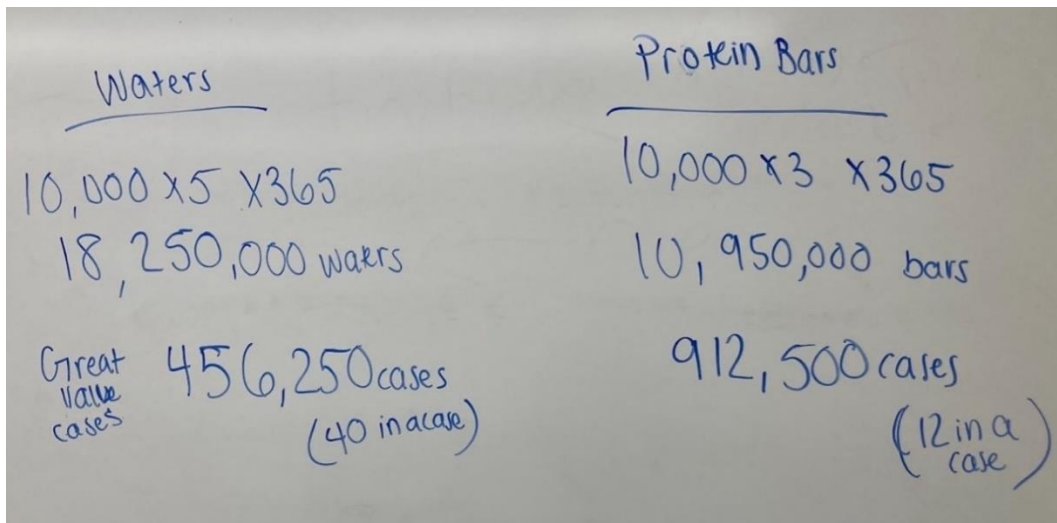 Waters
10,000 x5 x365
18,250,000 waters
Great
value
cases
456,250 cases
(40 in a case)
Protein Bars
10,000 x3 x365
10,950,000 bars
912,500 cases
(12 in a
case)